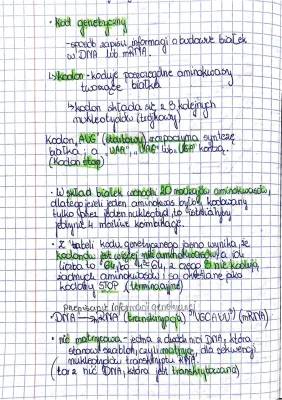 • Kod genetyczny
- sposób zapisu informacji o budowie białek
w DNA lub mRNA.
↳ kodon - koduje poszczególne aminokwasy
tworzące białka
↳ kodon składa się z 3 kolejnych
nukleotydów (trójkowy)
Kodon "AUG" (startowy) rozpoczyna syntezę
białka, a "UAA", "UAG" lub "UGA" kończą.
(kodon stop)
• W skład białek wchodzi 20 rodzajów aminokwasów,
dlatego jeżeli jeden aminokwas byłby kodowany
tylko przez jeden nukleotyd, to istniałyby
jedynie 4 możliwe kombinacje.
• Z tabeli kodu genetycznego jasno wynika, że
kodonów jest więcej niż aminokwasów, a ich
liczba to 64, bo 4³=64, z czego 3 nie kodują
żadnych aminokwasów i są określane jako
kodony STOP (terminacyjne)
informacji genetycznej
• DNA → RNA (transkrypcja) "UGCAUU" (mRNA)
• nić matrycowa - jedna z dwóch nici DNA, która
stanowi szablon, czyli matrycę, dla sekwencji
nukleotydów transkryptu RNA.
( to z nić DNA, która jest transkrybowana)